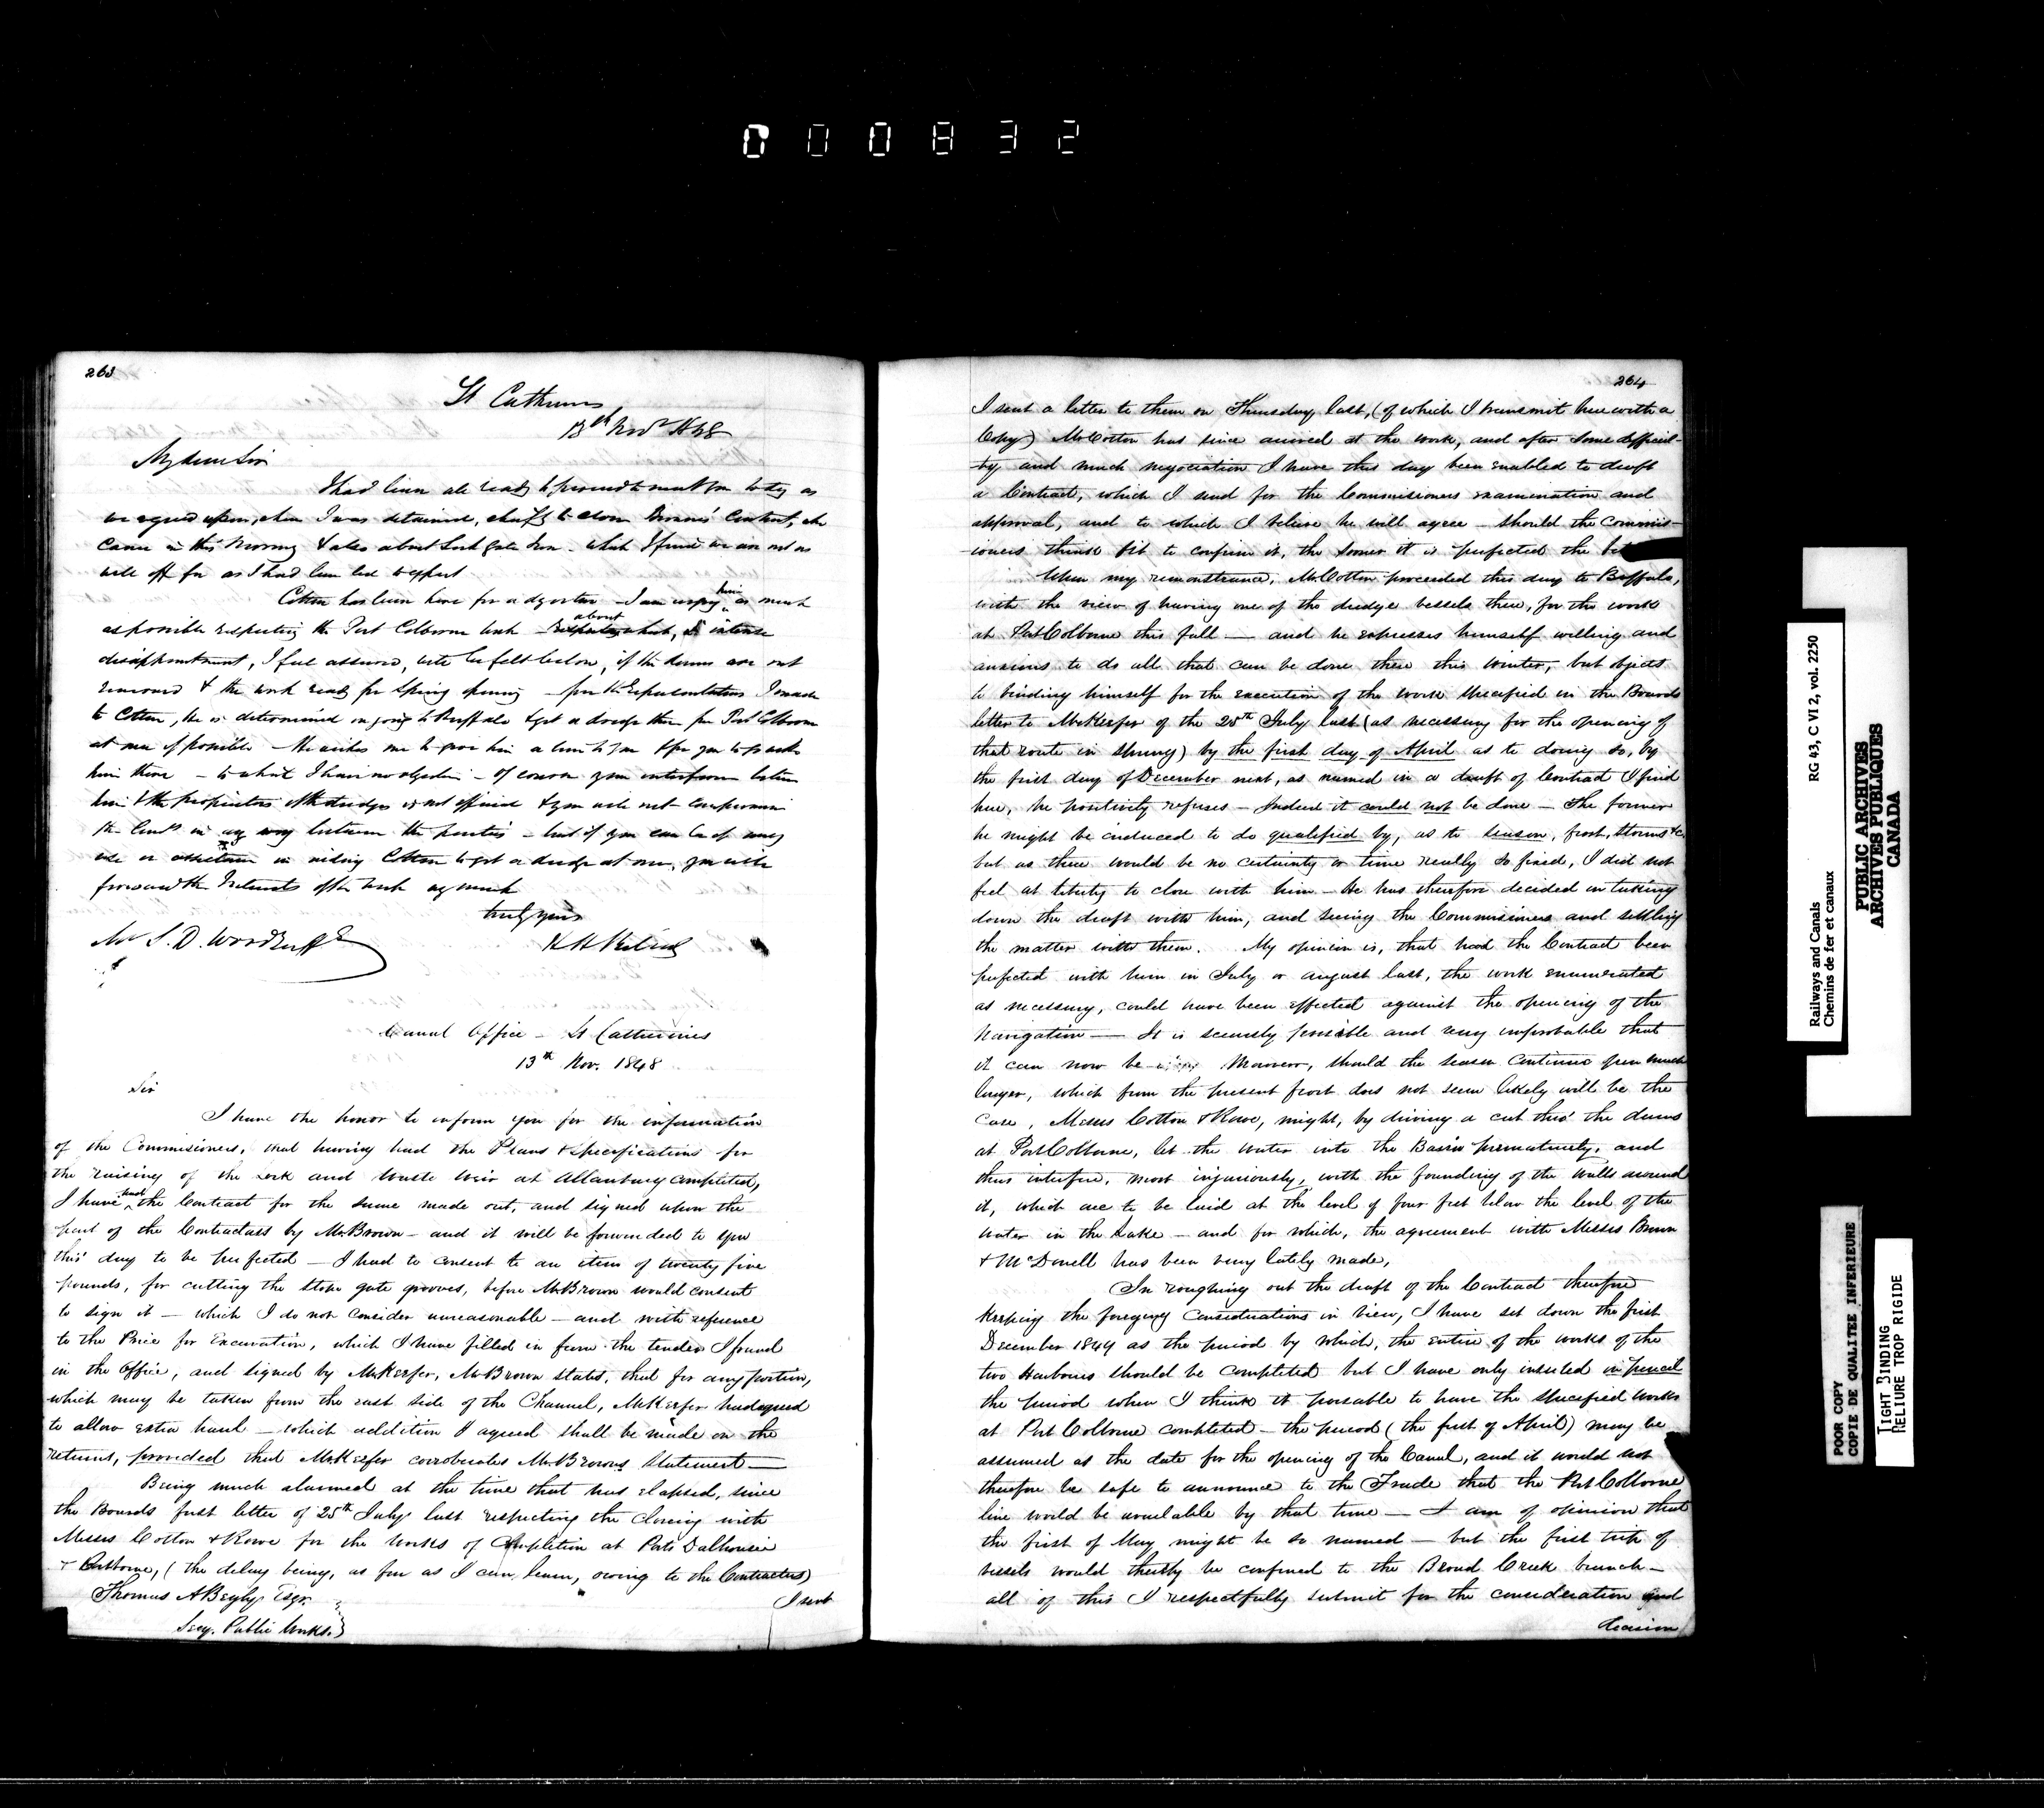 000832
263
St Catharines
13th Novr 1848
My dear Sir
I had been all ready to proceed to meet you to day as
we agreed upon, when I was detained, chiefly to close Browns' Contract, who
came in this Morning & also about Lock Gate Iron - which I find we are not as
well off for as I had been led to expect
Cotton has been here for a day or two - I am urging him as much
as possible respecting the Port Colborne work - about which, intense
disappointment, I feel assured, will be felt below, if the dams are not
removed & the work ready for Spring opening - from the Representations I made
to Cotton, he is determined on going to Buffalo & get a dredge there for Port Colborne
at once if possible - He wishes me to give him a line to you & for you to go with
him there - to which I have no objection - Of course your interference between
him & the proprietors of the dredges is not official & you will not compromise
the Comrs in any way between the parties - but if you can be of any
use or assistance in aiding Cotton to get a dredge at once, you will
forward the Interests of the work very much
truly yours
Mr S. D. Woodruff
H H Killaly
Canal Office - St Catherines
13th Nov. 1848
Sir
I have the honor to inform you for the information
of the Commissioners, that having had the Plans & Specifications for
the raising of the Lock and Waste Weir at Allanburg completed,
I have had the Contract for the same made out, and signed upon the
part of the Contractors by Mr Brown - and it will be forwarded to you
this day to be perfected - I had to consent to an item of twenty five
pounds, for cutting the stop gate grooves, before Mr Brown would consent
to sign it - which I do not consider unreasonable - and with reference
to the Price for Excavation, which I have filled in from the tender I found
in the Office, and signed by Mr Keefer, Mr Brown states, that for any portion,
which may be taken from the east side of the Channel, Mr Keefer had agreed
to allow extra haul - which addition I agreed shall be made in the
returns, provided that Mr Keefer corroborates Mr Browns Statement -
Being much alarmed at the time that has elapsed, since
the Boards first letter of 25th July last respecting the closing with
Messrs Cotton & Rowe for the works of Completion at Ports Dalhousie
& Colborne, (the delay being, as far as I can learn, owing to the Contractors)
Thomas A Begly Esqr
Secy. Public Works.
I sent
264
I sent a letter to them on Thursday last, (of which I transmit herewith a
Copy) Mr Cotton has since arrived at the work, and after some difficul-
ty and much negociation I have this day been enabled to draft
a Contract, which I send for the Commissioners examination and
approval, and to which I believe he will agree - should the Commis-
-ioners think fit to confirm it, the sooner it is perfected the
Upon my remonstrance, Mr Cotton proceeded this day to Buffalo,
with the view of having one of the dredge vessels there, for the work
at Port Colborne this fall - and he expresses himself willing and
anxious to do all that can be done there this winter, but objects
to binding himself for the execution of the work specified in the Boards
letter to Mr Keefer of the 25th July last (as necessary for the opening of
that route in spring) by the first day of April as to doing so, by
the first day of December next, as named in a draft of Contract I find
here, he positively refuses - Indeed it could not be done - The former
he might be induced to do qualified by, as to season, frost, Storms &c
but as there would be no certainty or time really so fixed, I did not
feel at liberty to close with him - He has therefore decided in taking
down the draft with him, and seeing the Commissioners and settling
the matter with them. My opinion is, that had the Contract been
perfected with him in July or August last, the work enumerated
as necessary, could have been effected against the opening of the
Navigation - It is scarcely possible and very improbable that
it can now be Moreover, should the season continue open much
longer, which from the present frost does not seem likely will be the
case, Messrs Cotton & Rowe, might, by driving a cut thro' the dams
at Port Colborne, let the water into the Basin prematurely, and
thus interfere, most injuriously, with the founding of the walls around
it, which are to be laid at the level of four feet below the level of the
water in the Lake - and for which, the agreement with Messrs Brown
& McDonell has been very lately made,
In roughing out the draft of the Contract therefore
keeping the foregoing Considerations in view, I have set down the first
December 1849 as the period by which, the entire of the works of the
two Harbours should be completed but I have only inserted in pencil
the period when I think it possable to have the specified works
at Port Colborne completed - the period (the first of April) may be
assumed as the date for the opening of the Canal, and it would not
therefore be safe to announce to the Trade that the Port Colborne
line would be available by that time - I am of opinion that
the first of May might be so named - but the first trip of
vessels would thereby be confined to the Broad Creek branch -
all of this I respectfully submit for the consideration and
decision
Railways and Canals RG 43, C VI 2, vol. 2250
Chemins de fer et canaux
PUBLIC ARCHIVES
ARCHIVES PUBLIQUES
CANADA
POOR COPY
COPIE DE QUALITEE INFERIEURE
TIGHT BINDING
RELIURE TROP RIGIDE